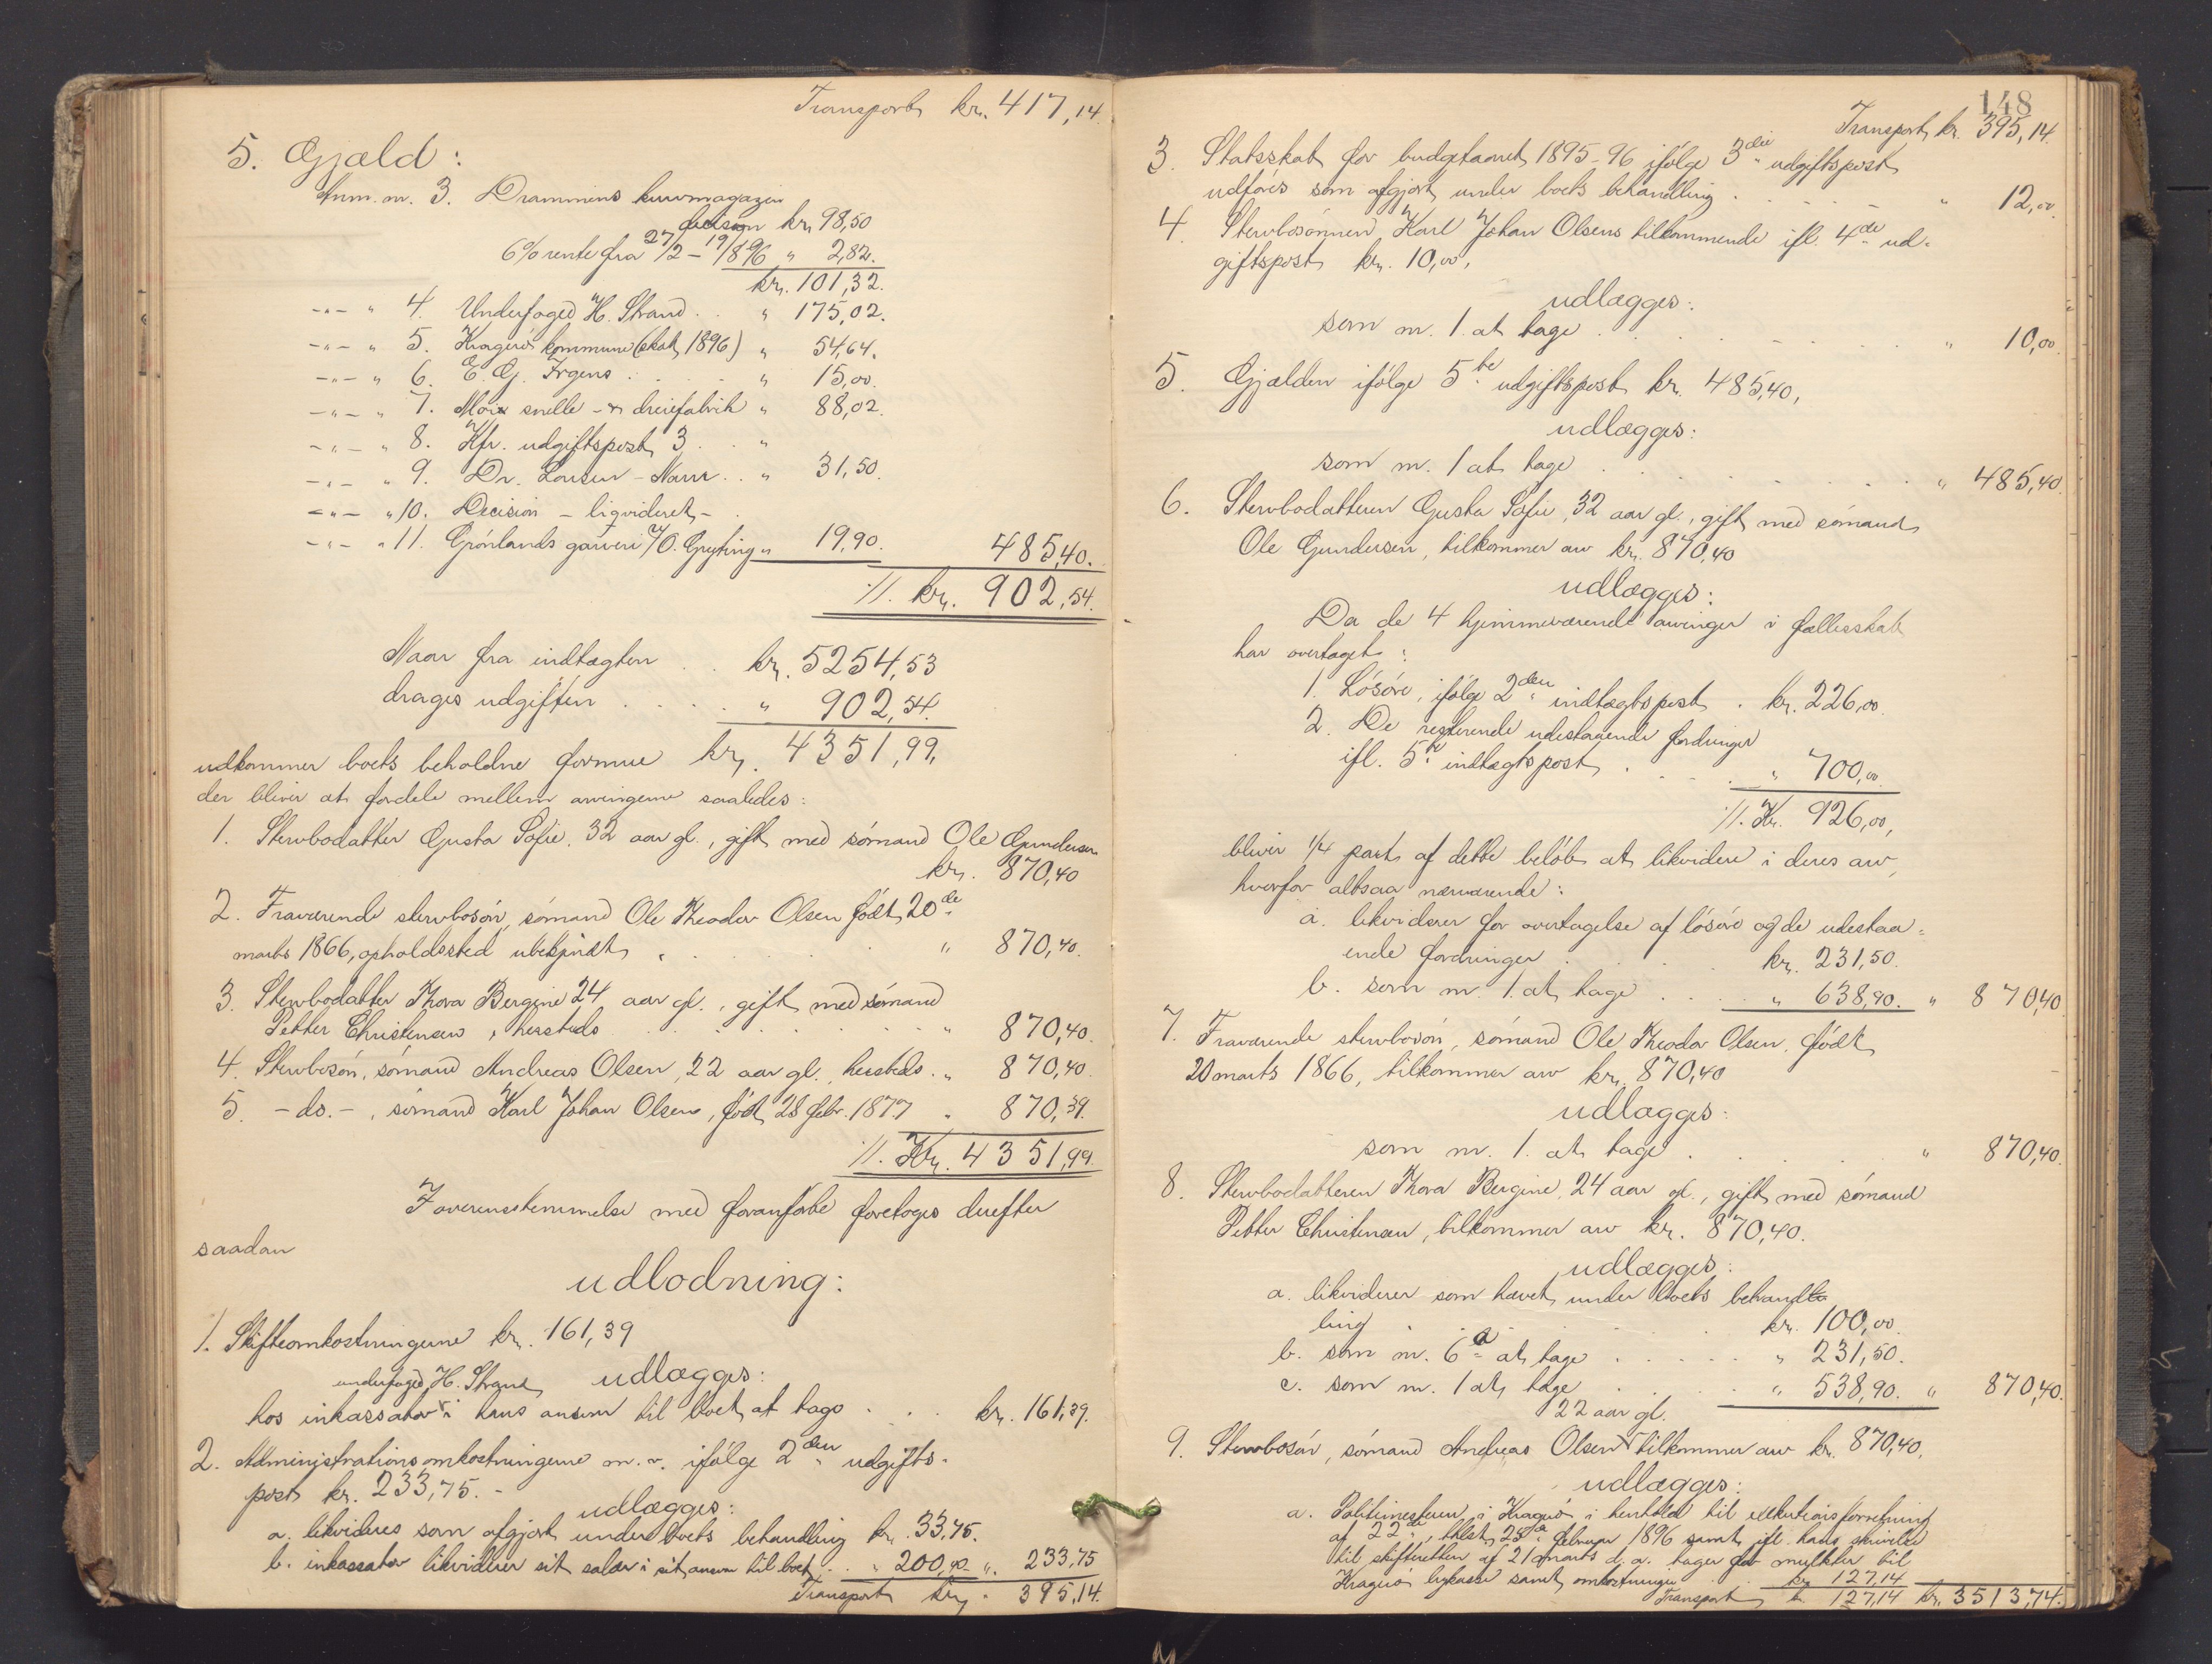 Transport kr. 417,14.
5. Gjæld:
Anm. nr. 3. Drammens kurvmagazin
decision kr. 98,50
6% rente fra 27/2 – 19/8 96 " 2,82.
kr. 101,32.
-"- " 4. Underfoged H. Strand . . " 175,02.
-"- " 5. Kragerø kommune (skat 1896) " 54,64.
-"- " 6. E. G. Irgens . . . " 15,00.
-"- " 7. Moix snelle- & dreiefabrik " 88,02.
-"- " 8. Kfr. udgiftspost 3 . . "
-"- " 9. Dr. Larsen - Narur . . " 31,50.
-"- " 10. Decision – ligvideret –
-"- " 11. Grønlands garveri v/ O. Gryting " 19,90. 485,40.
://. kr. 902,54.
Naar fra indtægten . . kr. 5254,53
drages udgiften . . . . " 902,54.
udkommer boets beholdne formue kr. 4351,99,
der bliver at fordele mellem arvingerne saaledes:
1. Stervbodatter Gusta Sofie, 32 aar gl., gift med sømand Ole Gundersen
kr. 870,40
2. Fraværende stervbosøn, sømand Ole Theodor Olsen født 20de
marts 1866, opholdssted ubekjendt . . . " 870,40.
3. Stervbodatter Thora Bergine 24 aar gl., gift med sømand
Petter Christensen, hersteds . . . . " 870,40.
4. Stervbosøn, sømand Andreas Olsen, 22 aar gl., hersteds . " 870,40.
5. – do. –, sømand Karl Johan Olsen, født 28 febr. 1877 " 870,39.
://. Kr. 4351,99.
I overensstemmelse med foranførte foretoges derefter
saadan
udlodning:
1. Skifteomkostningerne kr. 161,39
udlægges:
underfoged H. Strand
hos inkassator i hans ansvar til boet at tage . . . kr. 161,39.
2. Administrationsomkostningerne m. v. ifølge 2den udgifts-
post kr. 233,75. –
udlægges:
a. likvideres som afgjort under boets behandling kr. 33,75.
b. inkassator likviderer sit salær i sit ansvar til boet . . " 200,00 " 233,75
Transport kr. 395,14.
148
Transport kr. 395,14.
3. Statsskat for budgetaaret 1895-96 ifølge 3die udgiftspost
udføres som afgjort under boets behandling . . . . " 12,00.
4. Stervbosønnen Karl Johan Olsens tilkommende ifl. 4de ud-
giftspost kr. 10,00,
udlægges:
som nr. 1 at tage . . . . . . " 10,00.
5. Gjælden ifølge 5te udgiftspost kr. 485,40,
udlægges:
som nr. 1 at tage . . . . . . " 485,40.
6. Stervbodatteren Gusta Sofie, 32 aar gl., gift med sømand
Ole Gundersen, tilkommer arv kr. 870,40
udlægges:
Da de 4 hjemmeværende arvinger i fællesskab
har overtaget:
1. Løsøre, ifølge 2den indtægtspost . kr. 226,00.
2. De resterende udestaaende fordringer
ifl. 5te indtægtspost . . . . " 700,00.
://. Kr. 926,00,
bliver 1/4 part af dette beløb at likvidere i deres arv,
hvorfor altsaa nærværende:
a. likviderer for overtagelse af løsøre og de udestaa-
ende fordringer . . . . kr. 231,50.
b. som nr. 1 at tage . . . " 638,90. " 870,40
7. Fraværende stervbosøn, sømand Ole Theodor Olsen, født
20 marts 1866, tilkommer arv kr. 870,40
udlægges:
som nr. 1. at tage . . . . . " 870,40.
8. Stervbodatteren Thora Bergine, 24 aar gl., gift med sømand
Petter Christensen, tilkommer arv kr. 870,40.
udlægges:
a. likviderer som hævet under boets behand
ling . . . . . kr. 100,00.
b. som nr. 6 a at tage . . . . . " 231,50.
c. som nr. 1 at tage . . . . " 538,90. " 870,40.
22 aar gl.
9. Stervbosøn, sømand Andreas Olsen tilkommer arv kr. 870,40.
udlægges:
a. Politimesteren i Kragerø i henhold til exekutionsforretning
af 22de, thlst. 25de februar 1896 samt ifl. hans skrivelse
til skifteretten af 21 marts d. a. tager for mulkter til
Kragerø bykasse samt omkostninger . . kr. 127,14
Transport kr. 127,14 kr. 3513,74.